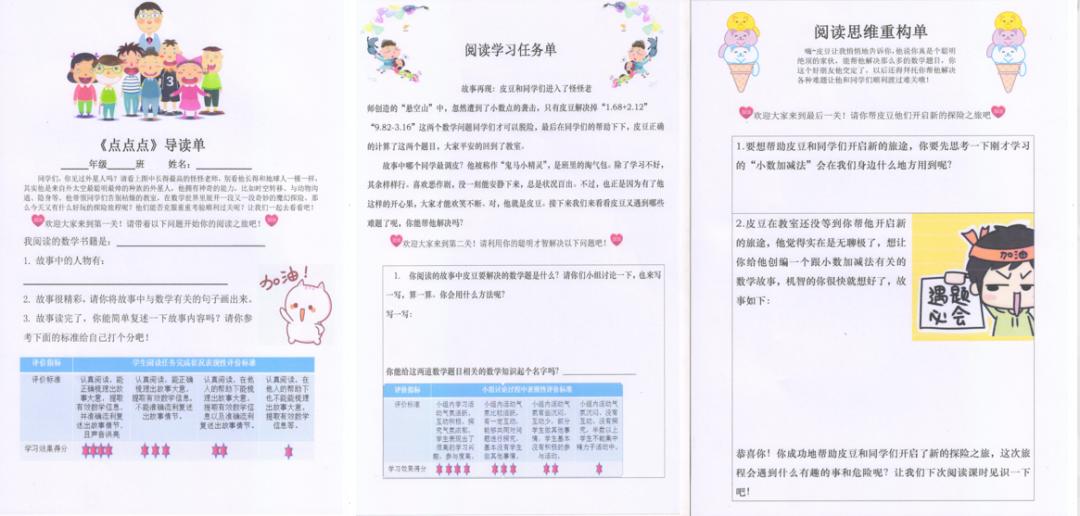 《点点点》导读单
______年级_____班 姓名：__________
同学们，你见过外星人吗？请看上图中长得最高的怪怪老师，别看他长得和地球人一模一样，
其实他是来自外太空最聪明最帅的种族的外星人，他拥有神奇的能力，比如时空转移、与动物沟
通、隐身等，他带领同学们告别枯燥的教室，在数学世界里展开一段又一段奇妙的魔幻探险，那
么今天又有什么好玩的探险旅程呢？他们能否克服重重考验顺利过关呢？让我们一起去看看吧！
欢迎大家来到第一关！请带着以下问题开始你的阅读之旅吧！
我阅读的数学书籍是：
1. 故事中的人物有：
2. 故事很精彩，请你将故事中与数学有关的句子画出来。
3. 故事读完了，你能简单复述一下故事内容吗？请你参
考下面的标准给自己打个分吧！
加油！
评价指标 学生阅读任务完成状况表现性评价标准
评价标准
认真阅读，能
正确梳理出故
事大意，提取
有效数学信息，
并准确流利复
述出故事情节。
且声音洪亮
认真阅读，能正确
梳理出故事大意，
提取有效数学信息，
不能准确流利复述
出故事情节。
认真阅读，在他
人的帮助下能梳
理出故事大意，
提取有效数学信
息以及准确流利
复述出故事情节。
认真阅读，在
他人的帮助下
也不能能梳理
出故事大意，
提取有效数学
信息等。
学习效果得分
阅读学习任务单
故事再现：皮豆和同学们进入了怪怪老
师创造的“悬空山”中，忽然遭到了小数点的袭击，只有皮豆解决掉“1.68+2.12”
“9.82-3.16”这两个数学问题同学们才可以脱险，最后在同学们的帮助下下，皮豆正确
的计算了这两个题目，大家平安的回到了教室。
故事中哪个同学最调皮？他被称作“鬼马小精灵”，是班里的淘气包。除了学习不好，
其余样样行。喜欢恶作剧，没一刻能安静下来，总是状况百出。不过，也正是因为有了他
这样的开心果，大家才能欢笑不断。对，他就是皮豆。接下来我们来看看皮豆又遇到哪些
难题了呢，你能帮他解决吗？
欢迎大家来到第二关！请利用你的聪明才智解决以下问题吧！
1. 你阅读的故事中皮豆要解决的数学题是什么？请你们小组讨论一下，也来写
一写，算一算。你会用什么方法呢？
写一写：
你能给这两道数学题目相关的数学知识起个名字吗？
评价指标 小组讨论过程中表现性评价标准
评价标准
小组内学习活
动气氛活跃，
互动积极。探
究气氛浓郁。
学生表现出了
很高的学习兴
趣，参与度高。
小组内活动气
氛比较活跃，
有一定互动，
能够共同对问
题进行探究。
基本没有学生
做其他事情。
小组内活动气
氛有些沉闷，
互动少，部分
学生做其他事
情，学生基本
没有积极的参
与活动。
小组内活动气
氛沉闷，没有
互动，没有探
究，半数以上
学生不能集中
精力于活动中。
学习效果得分
阅读思维重构单
嗨~皮豆让我悄悄地告诉你，他说你真是个聪明
绝顶的家伙，能帮他解决那么多的数学题目，你
这个好朋友他交定了，以后还得拜托你帮他解决
各种难题让他和同学们顺利渡过难关哦！
欢迎大家来到最后一关！请你帮皮豆他们开启新的探险之旅吧
1.要想帮助皮豆和同学们开启新的旅途，你要先思考一下刚才学习
的“小数加减法”会在我们身边什么地方用到呢？
2.皮豆在教室还没等到你帮他开启新
的旅途，他觉得实在是无聊极了，想让
你给他创编一个跟小数加减法有关的
数学故事，机智的你很快就想好了，故
事如下：
加油
遇题
必会
恭喜你！你成功地帮助皮豆和同学们开启了新的探险之旅，这次旅
程会遇到什么有趣的事和危险呢？让我们下次阅读课时见识一下
吧！